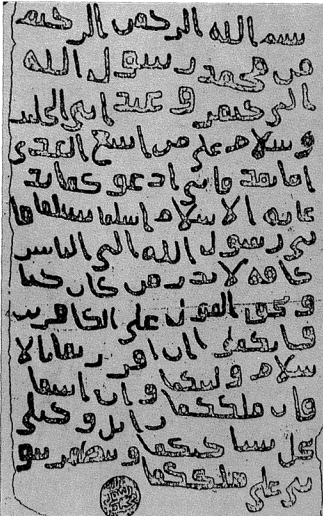 بسم الله الرحمن الرحيم
من محمد رسول الله
الى جيفر و عبد ابني الجلند
و سلام على من اتبع الهدى
اما بعد فاني ادعو كما بد
عايه الاسلام اسلما تسلما فا
ني رسول الله الى الناس
كافه لانذر من كان حيا
و يحق القول على الكافرين
فانكما ان اقررتما بالا
سلام وليتكما وان ابيتما
فان ملككما زايل و خيلي
تحل بساحتكما و تظهر نبو
تي على ملككما